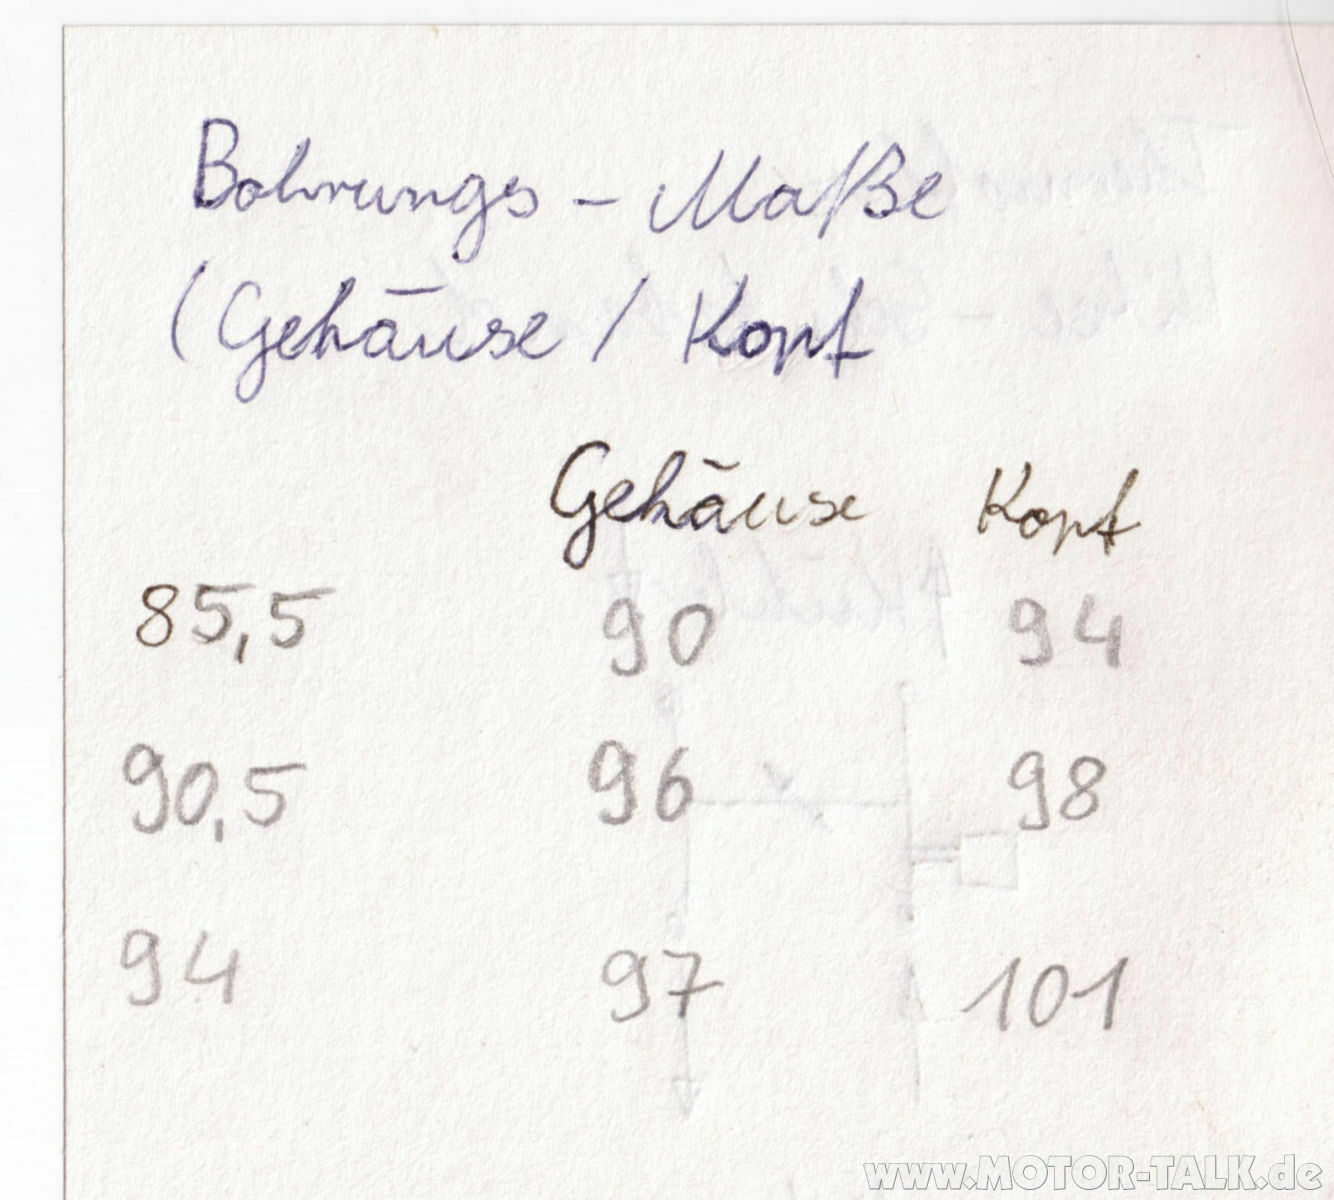 Bohrungs - Maße
(Gehäuse / Kopf
Gehäuse Kopf
85,5 90 94
90,5 96 98
94 97 101
www.MOTOR-TALK.de